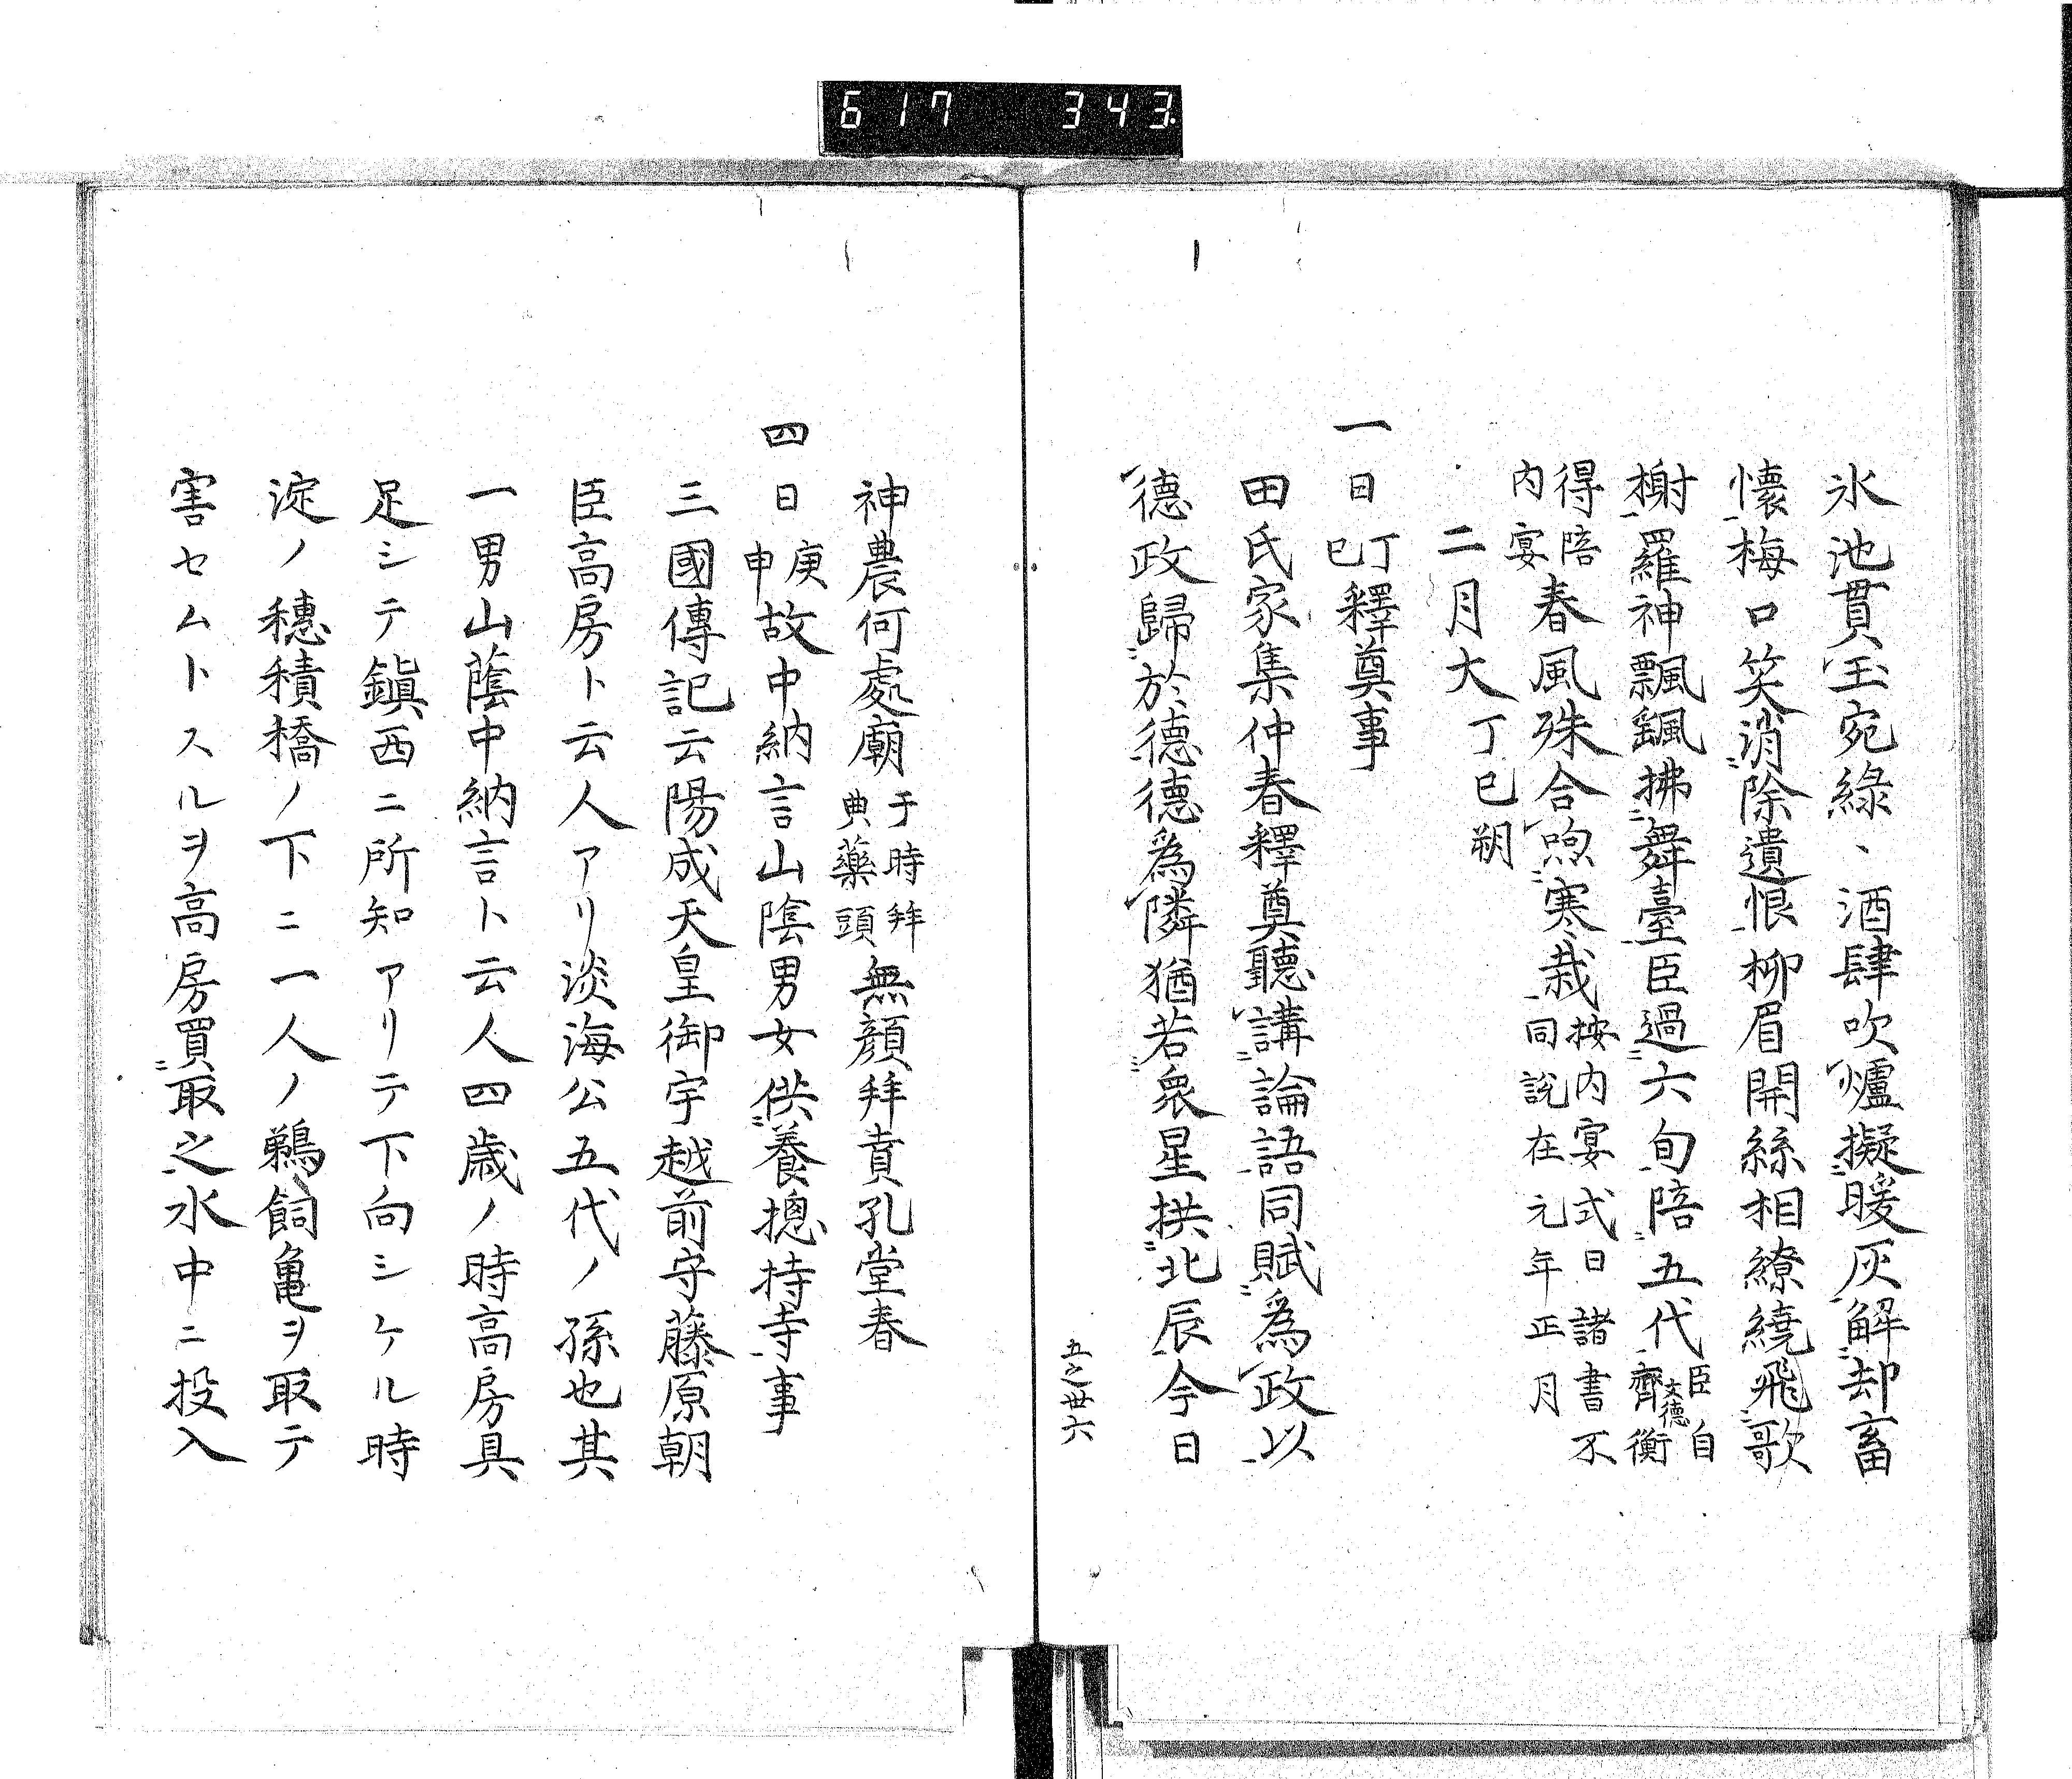 617 343.
氷池貫玉宛綠、酒肆吹爐擬暖灰解却畜
懐梅口笑消除遺恨柳眉開絲相繚繞飛歌
榭羅神飄颻拂舞臺臣過六旬陪五代臣自文德齊衡
得陪内宴春風殊合喣寒栽按内宴式日諸書不同說在元年正月
二月大丁巳朔
一日丁巳釋奠事
田氏家集仲春釋奠聽講論語同賦為政以
德政歸於德德為隣猶若衆星拱北辰今日
五之卅六
神農何處廟于時拜典藥頭無顔拜責孔堂春
四日庚申故中納言山陰男女供養摠持寺事
三國傳記云陽成天皇御宇越前守藤原朝
臣高房ト云人アリ淡海公五代ノ孫也其
一男山蔭中納言ト云人四歳ノ時高房具
足シテ鎭西ニ所知アリテ下向シケル時
淀ノ穗積橋ノ下ニ一人ノ鵜飼亀ヲ取テ
害セムトスルヲ高房買取之水中ニ投入